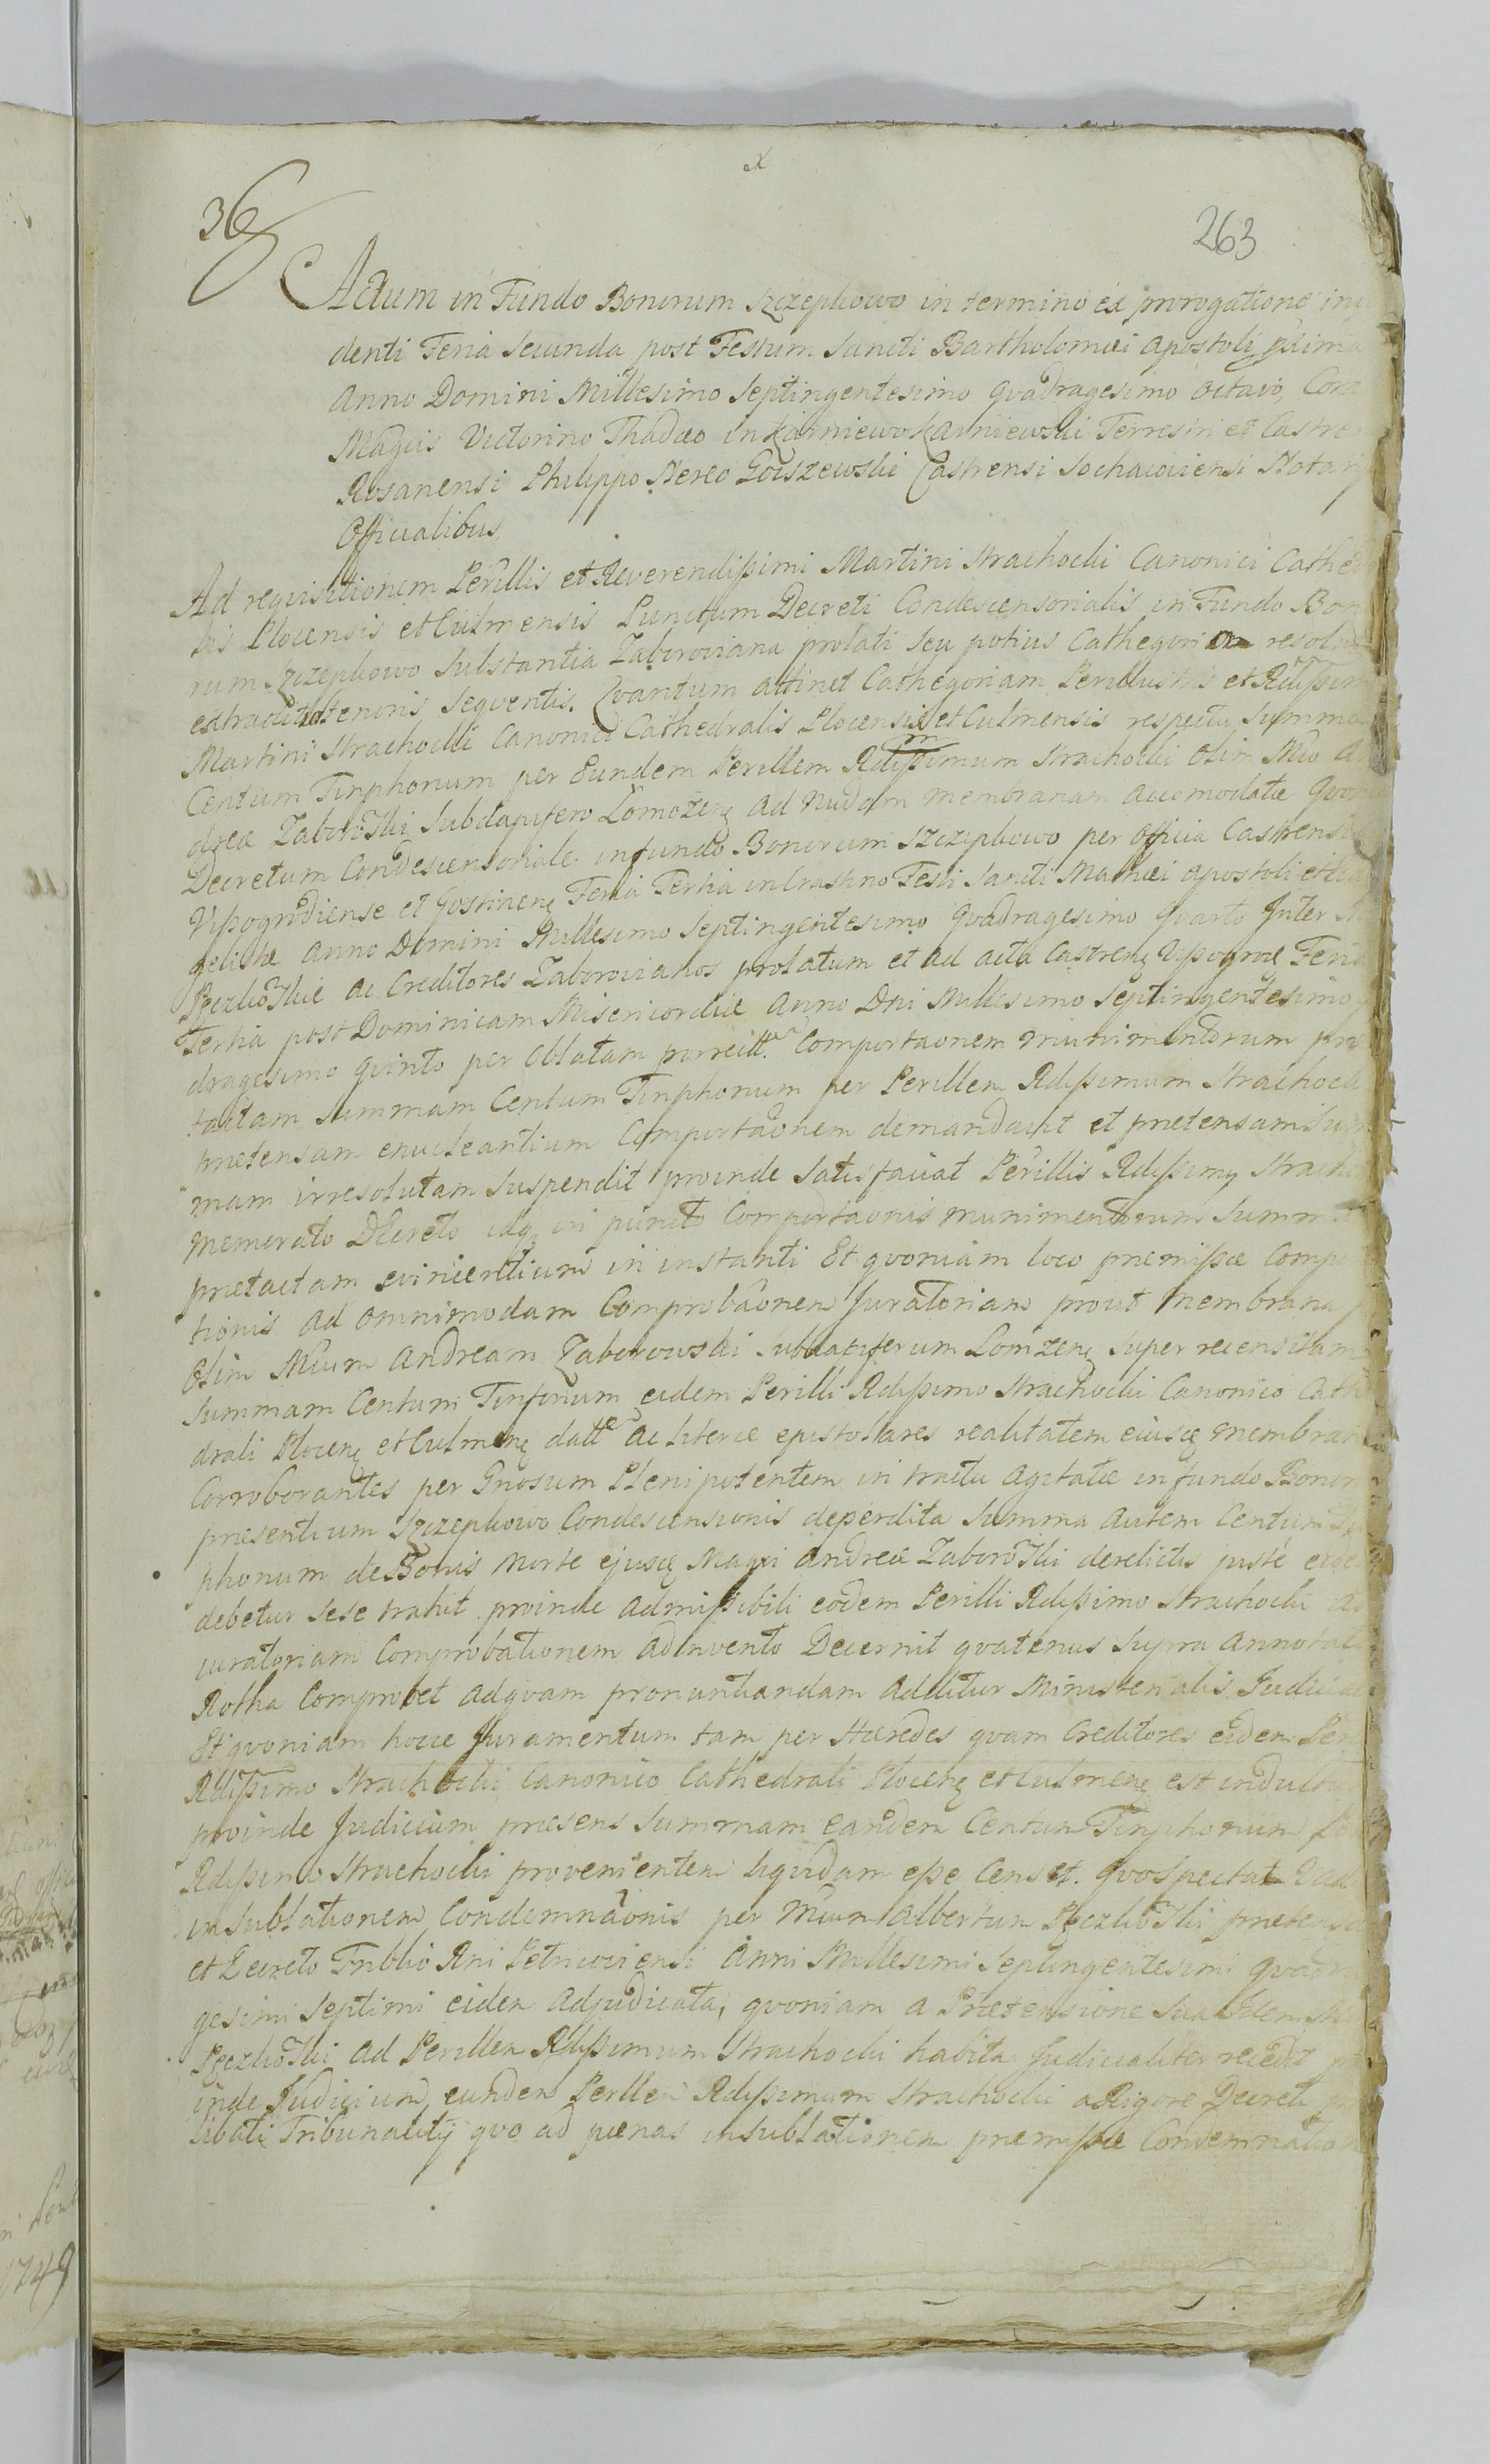 x
36
263
Actum in Fundo Bonorum Szczepkowo in termino ex prorogatione inci
denti Feria Secunda post Festum Sancti Bartholomæi Apostoli
Anno Domini Millesimo Septingentesimo Quadragesimo Octavo, Cora
Magcis Victorino Thadæo in Karniewo Karniewski Terrestri et Castren
Rosanensi Philippo Nereo Goiszewski Castrensi Sochacoviensi Notarij
Officialibus
Ad requisitionem Perillis et Reverendissimi Martini Strachocki Canonici Cathed
lis Plocensis et Culmensis Punctum Decreti Condescensorialis in Fundo Bon
rum Szczepkowo Substantia Zaboroviana prolati seu potius Cathegoria resolu
extradit tenoris sequentis. Quantum attinet Cathegoriam Perillustris et Rdissim
Martini Strachocki Canonici Cathedralis Plocensis et Culmensis respectu Summæ
Centum Tinphonum per Eundem Perillem Rdissimum Strachocki Olim Mco An
dreæ Zaborowski Subdapifero Lomozen ad nudam membranam accomodatæ Quon
Decretum Condescensoriale in fundo Bonorum Szczepkowo per Officia Castrensia
Vyszogrodiense et Gostinen Feria Tertia in Crastino Festi Sancti Mathæi Apostoli et Eva
gelistæ Anno Domini Millesimo Septingentesimo Quadragesimo Quarto Inter
ac Creditores Zaborovianos prolatum et ad acta Castren Vyszogrod Feria
Tertia post Dominicam Misericordiæ Anno Dni Millesimo Septingentesimo
dragesimo Quinto per Oblatam porrectt. Comportaonem munimentorum præ
tactam Summam Centum Tinphonum per Perillem Rdissimum Strachocki
prætensam enucleantium Comportaonem demandavit et prætensam Sum
mam irresolutam suspendit proinde satisfaciat Perillis Rdissimus Stracho
memorato Decreto idq in puncto Comportaonis munimentorum Summ
prætactam evincentium in instanti Et quoniam loco præmissæ Comp
tionis ad omnimodam Comprobaonem Juratoriam prout membrana
Olim Mcum Andream Zaborowski Subdapiferum Lomzen super recensitam
Summam Centum Tinfonum eidem Perilli Rdissimo Strachocki Canonico Cath
drali Plocen et Culmen datt ac literæ epistolares realitatem ejusd membran
Corroborantes per Gnosum Plenipotentem in tractu agitatæ in fundo Bonor
præsentium Szczepkowo Condescensionis deperdita Summa autem Centum Tin
phonum de Bonis morte ejusd Magci Andreæ Zaborowski derelictis juste
debetur sese trahit proinde admissibili eodem Perilli Rdissimo Strachocki ad
juratoriam Comprobationem adinvento Decernit quatenus supra annotata
Rotha Comprobet ad quam pronuntiandam additur Ministerialis Judicia
Et quoniam hocce Juramentum tam per Hæredes quam Creditores eidem Per
Rdissimo Strachocki Canonico Cathedrali Plocen et Culmen est indult
proinde Judicium præsens Summam eandem Centum Tinphonum
Rdissimo Strachocki provenientem liquidam esse Censet. Quo spectat Vad
in sublationem Condemnaonis per Mcum Albertum prætens
et Decreto Tribli Rni Petricoviensi Anni Millesimi Septingentesimi Quadra
gesimi Septimi eidem adjudicata, quoniam a Prætensione sua Idem M
ad Perillem Rdissimum Strachocki habita Judicialiter recedit pro
inde Judicium eundem Perillem Rdissimum Strachocki a Rigore Decreti
libati Tribunalitij quo ad pænas in sublationem præmissæ Condemnation
1749